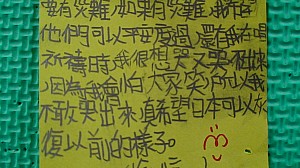 要有災難,如果有災難,我希望
他們可以平安度過,還有我在唱
祈禱時,我很想哭又哭不出來
,因為我會怕大家笑我所以我
不敢哭出來,真希望日本可以恢
復以前的樣子。